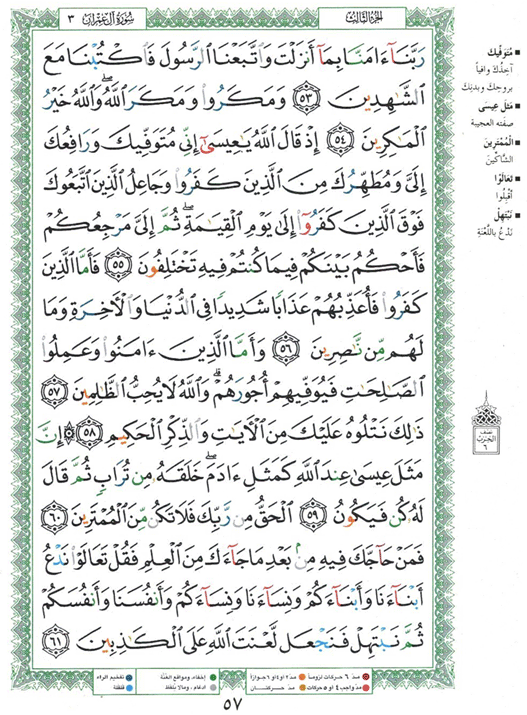 الجزء الثالث
سورة آل عمران ٣
رَبَّنَآ ءَامَنَّا بِمَآ أَنزَلْتَ وَٱتَّبَعْنَا ٱلرَّسُولَ فَٱكْتُبْنَا مَعَ
ٱلشَّٰهِدِينَ ٥٣ وَمَكَرُوا۟ وَمَكَرَ ٱللَّهُ ۖ وَٱللَّهُ خَيْرُ
ٱلْمَٰكِرِينَ ٥٤ إِذْ قَالَ ٱللَّهُ يَٰعِيسَىٰٓ إِنِّى مُتَوَفِّيكَ وَرَافِعُكَ
إِلَىَّ وَمُطَهِّرُكَ مِنَ ٱلَّذِينَ كَفَرُوا۟ وَجَاعِلُ ٱلَّذِينَ ٱتَّبَعُوكَ
فَوْقَ ٱلَّذِينَ كَفَرُوٓا۟ إِلَىٰ يَوْمِ ٱلْقِيَٰمَةِ ۖ ثُمَّ إِلَىَّ مَرْجِعُكُمْ
فَأَحْكُمُ بَيْنَكُمْ فِيمَا كُنتُمْ فِيهِ تَخْتَلِفُونَ ٥٥ فَأَمَّا ٱلَّذِينَ
كَفَرُوا۟ فَأُعَذِّبُهُمْ عَذَابًا شَدِيدًا فِى ٱلدُّنْيَا وَٱلْءَاخِرَةِ وَمَا
لَهُم مِّن نَّٰصِرِينَ ٥٦ وَأَمَّا ٱلَّذِينَ ءَامَنُوا۟ وَعَمِلُوا۟
ٱلصَّٰلِحَٰتِ فَيُوَفِّيهِمْ أُجُورَهُمْ ۗ وَٱللَّهُ لَا يُحِبُّ ٱلظَّٰلِمِينَ ٥٧
ذَٰلِكَ نَتْلُوهُ عَلَيْكَ مِنَ ٱلْءَايَٰتِ وَٱلذِّكْرِ ٱلْحَكِيمِ ٥٨ ۞ إِنَّ
مَثَلَ عِيسَىٰ عِندَ ٱللَّهِ كَمَثَلِ ءَادَمَ ۖ خَلَقَهُۥ مِن تُرَابٍ ثُمَّ قَالَ
لَهُۥ كُن فَيَكُونُ ٥٩ ٱلْحَقُّ مِن رَّبِّكَ فَلَا تَكُن مِّنَ ٱلْمُمْتَرِينَ ٦٠
فَمَنْ حَآجَّكَ فِيهِ مِنۢ بَعْدِ مَا جَآءَكَ مِنَ ٱلْعِلْمِ فَقُلْ تَعَالَوْا۟ نَدْعُ
أَبْنَآءَنَا وَأَبْنَآءَكُمْ وَنِسَآءَنَا وَنِسَآءَكُمْ وَأَنفُسَنَا وَأَنفُسَكُمْ
ثُمَّ نَبْتَهِلْ فَنَجْعَل لَّعْنَتَ ٱللَّهِ عَلَى ٱلْكَٰذِبِينَ ٦١
■ مُتَوَفِّيكَ
آخِذُكَ وافياً
بروحِكَ وبدنِكَ
■ مَثَلَ عِيسَى
صفته العجيبة
■ الْمُمْتَرِينَ
الشَّاكِّينَ
■ تَعَالَوْا
أَقْبِلُوا
■ نَبْتَهِلْ
نَدْعُ باللَّعْنَةِ
نصف
الحزب
٦
مدّ ٦ حركات لزوماً مدّ ٢ أو ٤ أو ٦ جوازاً إخفاء، ومواقع الغُنَّة تفخيم الراء
مدّ واجب ٤ أو ٥ حركات مدّ حركتان إدغام، وما لا يُلفظ قلقلة
٥٧